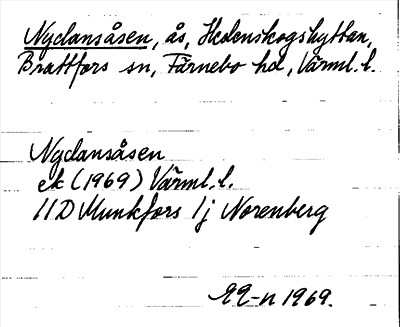 Nydansåsen, ås, Hedenskogshyttan,
Brattfors sn, Färnebo hd, Värml. l.
Nydansåsen
ek (1969) Värml. l.
11D Munkfors 1j Norenberg
1969.